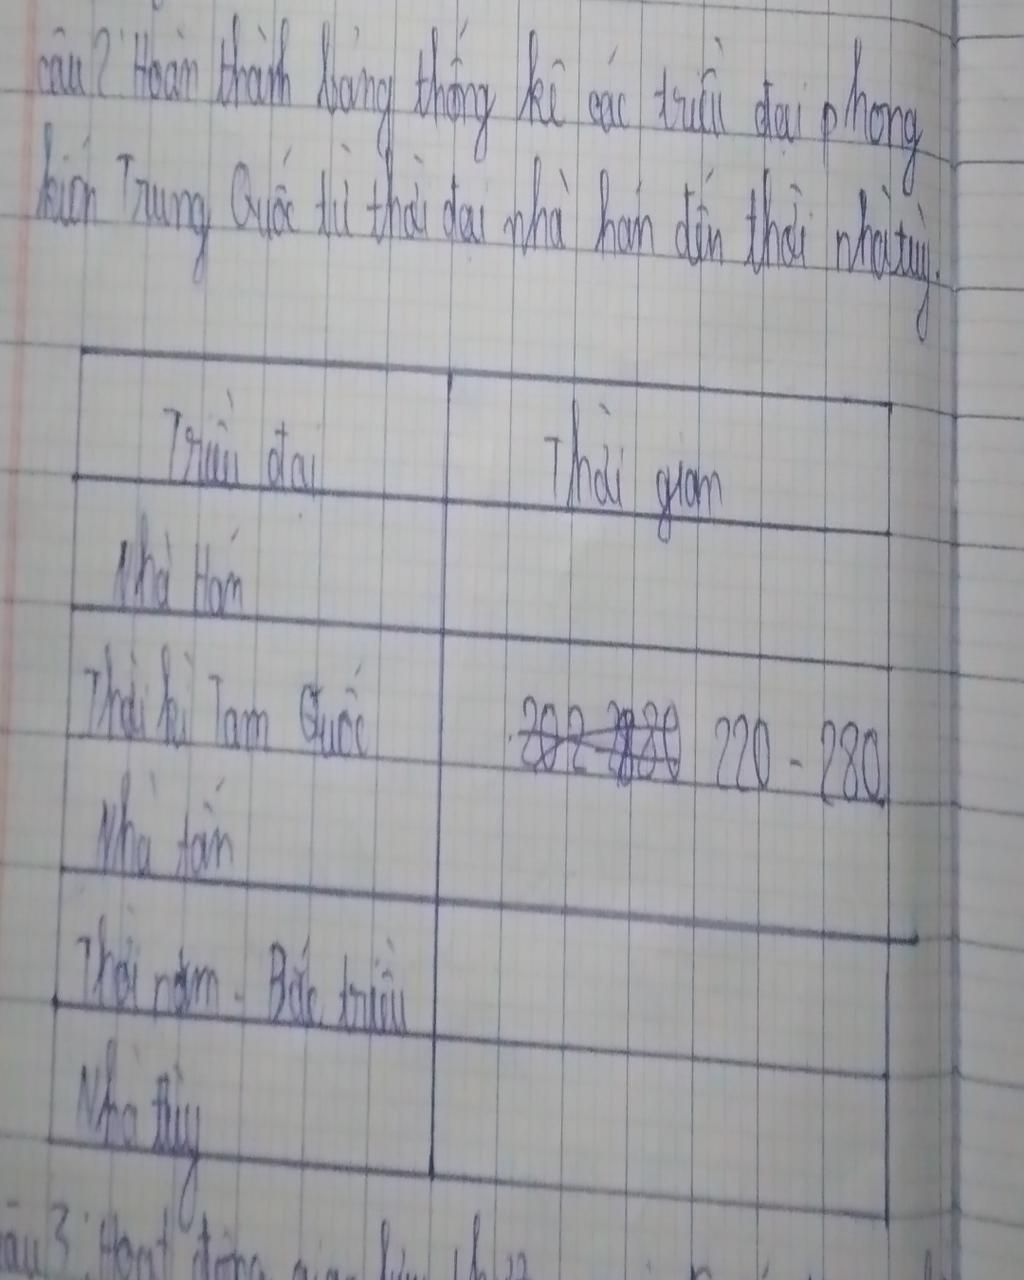 câu 2: Hoàn thành bảng thống kê các triều đại phong
kiến Trung Quốc từ thời đại nhà hán đến thời nhà tùy.
Triều đại Thời gian
Nhà Hán
Thời kì Tam Quốc 220 - 280
Nhà tấn
Thời nam - Bắc triều
Nhà tùy
câu 3: Hoạt động